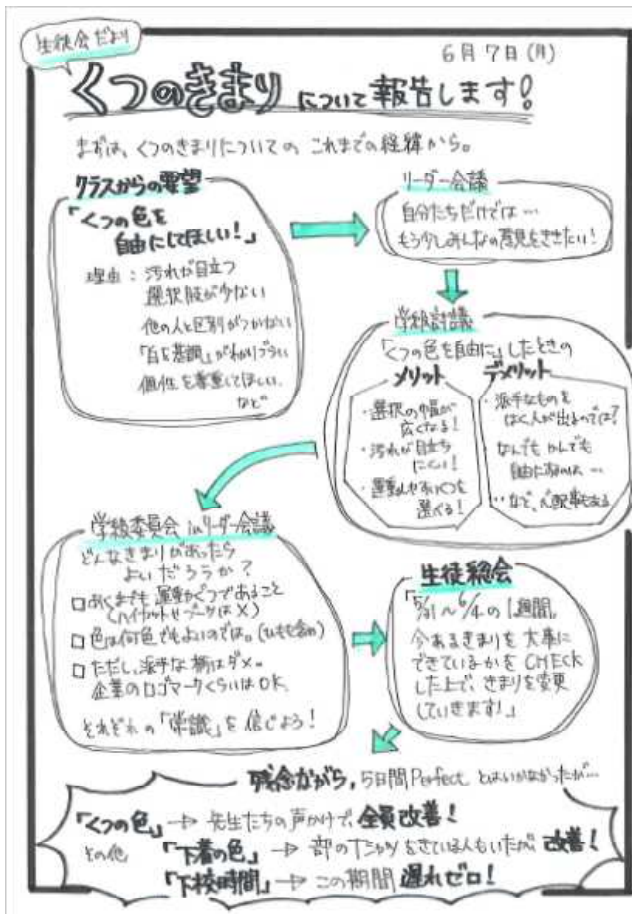 生徒会だより
6月7日(月)
くつのきまりについて報告します!
まずは、くつのきまりについての これまでの経緯から。
クラスからの要望
「くつの色を
自由にしてほしい!」
理由:汚れが目立つ
選択肢が少ない
他の人と区別がつかない
「白を基調」がわかりづらい
個性を尊重してほしい
など
リーダー会議
自分たちだけでは…
もう少しみんなの意見をききたい!
学級討議
「くつの色を自由に」したときの
メリット
・選択の幅が
広くなる!
・汚れが目立ち
にくい!
・運動しやすいくつを
選べる!
デメリット
・派手なものを
はく人が出るのでは?
・なんでもかんでも
自由にするのは…
…など、心配事もある
学級委員会 inリーダー会議
どんなきまりがあったら
よいだろうか?
□あくまでも運動ぐつであること
(ハイカットやブーツは×)
□色は何色でもよいのでは。(ひもも含め)
□ただし、派手な柄はダメ。
企業のロゴマークくらいはOK.
それぞれの「常識」を信じよう!
生徒総会
「5/31〜6/4の1週間、
今あるきまりを大事に
できているかをCHECK
した上で、きまりを変更
していきます!」
残念ながら、5日間Perfect とはいかなかったが…
「くつの色」→ 先生たちの声かけで、全員改善!
その他 「下着の色」→ 部のTシャツをきている人もいたが、改善!
「下校時間」→ この期間 遅れゼロ!